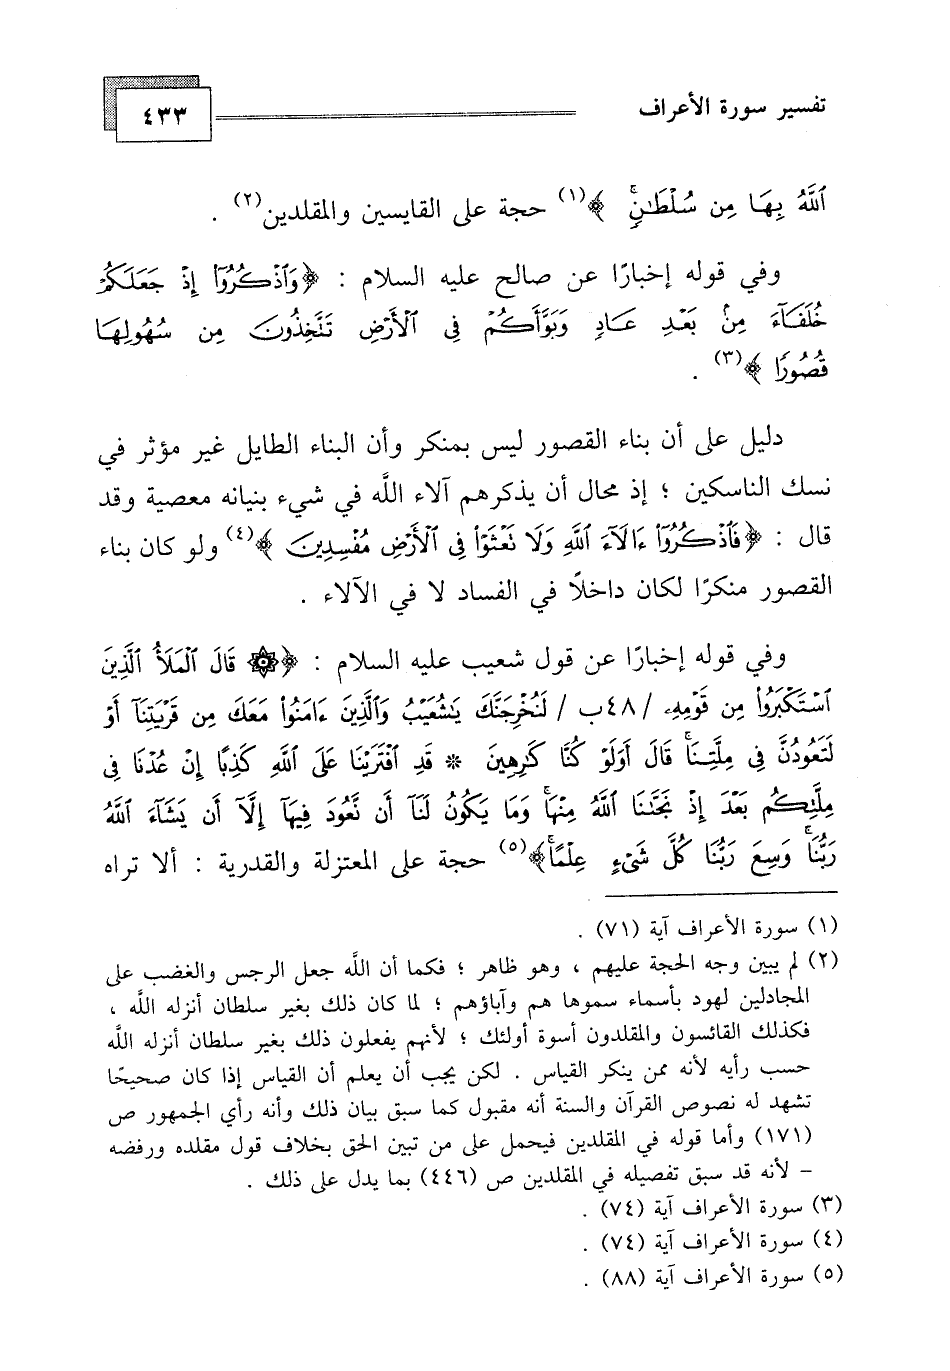 تفسير سورة الأعراف
٤٣٣
ٱللَّهُ بِهَا مِن سُلْطَٰنٍۚ ﴾(١) حجة على القايسين والمقلدين(٢) .
وفي قوله إخبارًا عن صالح عليه السلام : ﴿وَٱذْكُرُوٓا۟ إِذْ جَعَلَكُمْ
خُلَفَآءَ مِنۢ بَعْدِ عَادٍ وَبَوَّأَكُمْ فِى ٱلْأَرْضِ تَتَّخِذُونَ مِن سُهُولِهَا
قُصُورًا ﴾(٣) .
دليل على أن بناء القصور ليس بمنكر وأن البناء الطايل غير مؤثر في
نسك الناسكين ؛ إذ محال أن يذكرهم آلاء اللَّه في شيء بنيانه معصية وقد
قال : ﴿فَٱذْكُرُوٓا۟ ءَالَآءَ ٱللَّهِ وَلَا تَعْثَوْا۟ فِى ٱلْأَرْضِ مُفْسِدِينَ ﴾(٤) ولو كان بناء
القصور منكرًا لكان داخلاً في الفساد لا في الآلاء .
وفي قوله إخبارًا عن قول شعيب عليه السلام : ﴿۞ قَالَ ٱلْمَلَأُ ٱلَّذِينَ
ٱسْتَكْبَرُوا۟ مِن قَوْمِهِۦ /٤٨ب/ لَنُخْرِجَنَّكَ يَٰشُعَيْبُ وَٱلَّذِينَ ءَامَنُوا۟ مَعَكَ مِن قَرْيَتِنَآ أَوْ
لَتَعُودُنَّ فِى مِلَّتِنَاۚ قَالَ أَوَلَوْ كُنَّا كَٰرِهِينَ * قَدِ ٱفْتَرَيْنَا عَلَى ٱللَّهِ كَذِبًا إِنْ عُدْنَا فِى
مِلَّتِكُم بَعْدَ إِذْ نَجَّىٰنَا ٱللَّهُ مِنْهَاۚ وَمَا يَكُونُ لَنَآ أَن نَّعُودَ فِيهَآ إِلَّآ أَن يَشَآءَ ٱللَّهُ
رَبُّنَاۚ وَسِعَ رَبُّنَا كُلَّ شَىْءٍ عِلْمًاۚ﴾(٥) حجة على المعتزلة والقدرية : ألا تراه
(١) سورة الأعراف آية (٧١) .
(٢) لم يبين وجه الحجة عليهم ، وهو ظاهر ؛ فكما أن اللَّه جعل الرجس والغضب على
المجادلين لهود بأسماء سموها هم وآباؤهم ؛ لما كان ذلك بغير سلطان أنزله اللَّه ،
فكذلك القائسون والمقلدون أسوة أولئك ؛ لأنهم يفعلون ذلك بغير سلطان أنزله اللَّه
حسب رأيه لأنه ممن ينكر القياس . لكن يجب أن يعلم أن القياس إذا كان صحيحًا
تشهد له نصوص القرآن والسنة أنه مقبول كما سبق بيان ذلك وأنه رأي الجمهور ص
(١٧١) وأما قوله في المقلدين فيحمل على من تبين الحق بخلاف قول مقلده ورفضه
– لأنه قد سبق تفصيله في المقلدين ص (٤٤٦) بما يدل على ذلك .
(٣) سورة الأعراف آية (٧٤) .
(٤) سورة الأعراف آية (٧٤) .
(٥) سورة الأعراف آية (٨٨) .